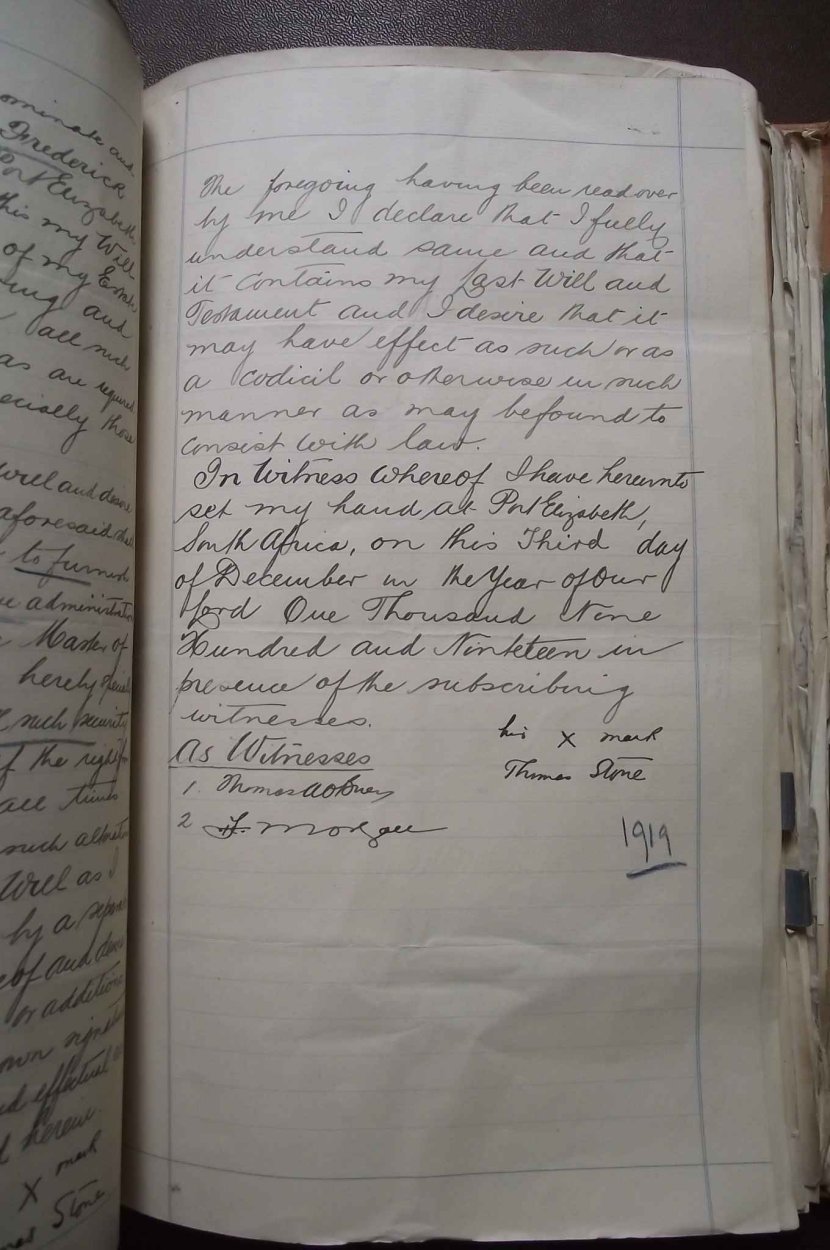 ominate and
Frederick
Port Elizabeth
this my Will
of my Estate
and
all such
as are required
ecially those
Will and desire
aforesaid that
to furnish
administration
Master of
hereby
such security
of the right
all times
such alteration
Will as I
by a separate
of and
or additions
own
effectual
herein
X mark
Stone
The foregoing having been read over
by me I declare that I fully
understand same and that
it contains my Last Will and
Testament and I desire that it
may have effect as such or as
a codicil or otherwise in such
manner as may be found to
consist with law.
In Witness Whereof I have hereunto
set my hand at Port Elizabeth,
South Africa, on this Third day
of December in the Year of Our
Lord One Thousand Nine
Hundred and Ninteteen in
presence of the subscribing
witnesses.
his X mark
As Witnesses
Thomas Stone
1 Thomas
2 Morgan
1919